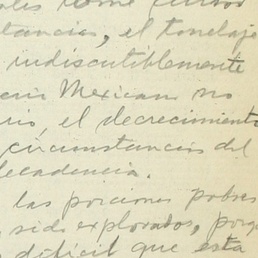 como
tancias, el tonelaje
indiscutiblemente
Mexican no
el decrecimiento
circunstancias del
decadencia.
las porciones pobres
sido explorados, porq
dificil que esta